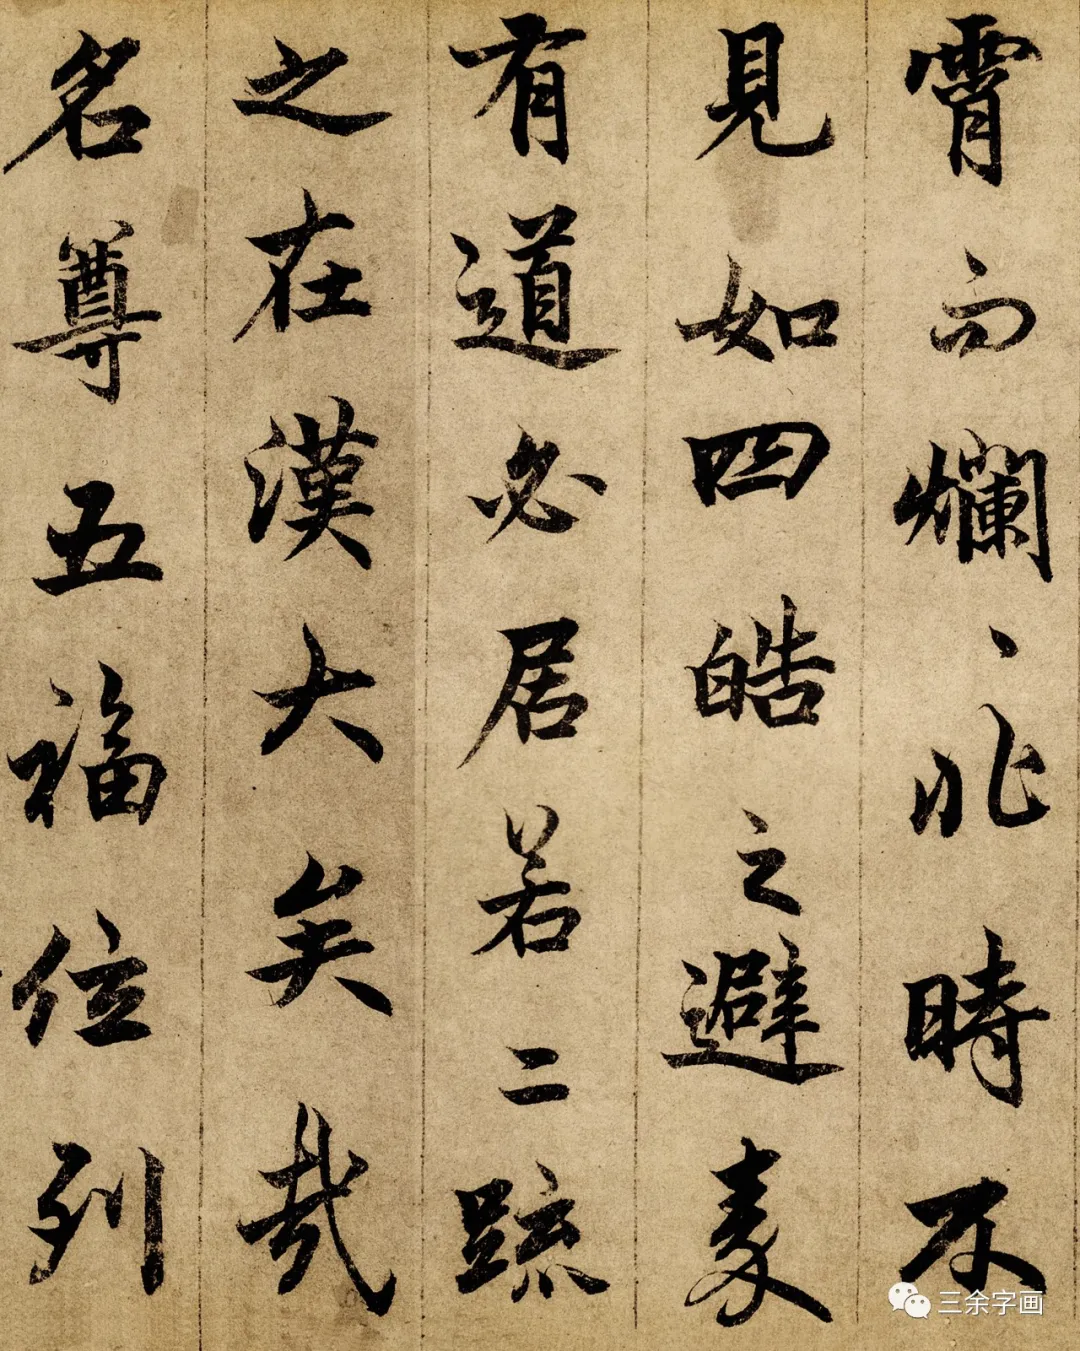 霄而爛〻非時不
見如四皓之避秦
有道必居若二䟽
之在漢大矣哉
名尊五福位列
三余字画